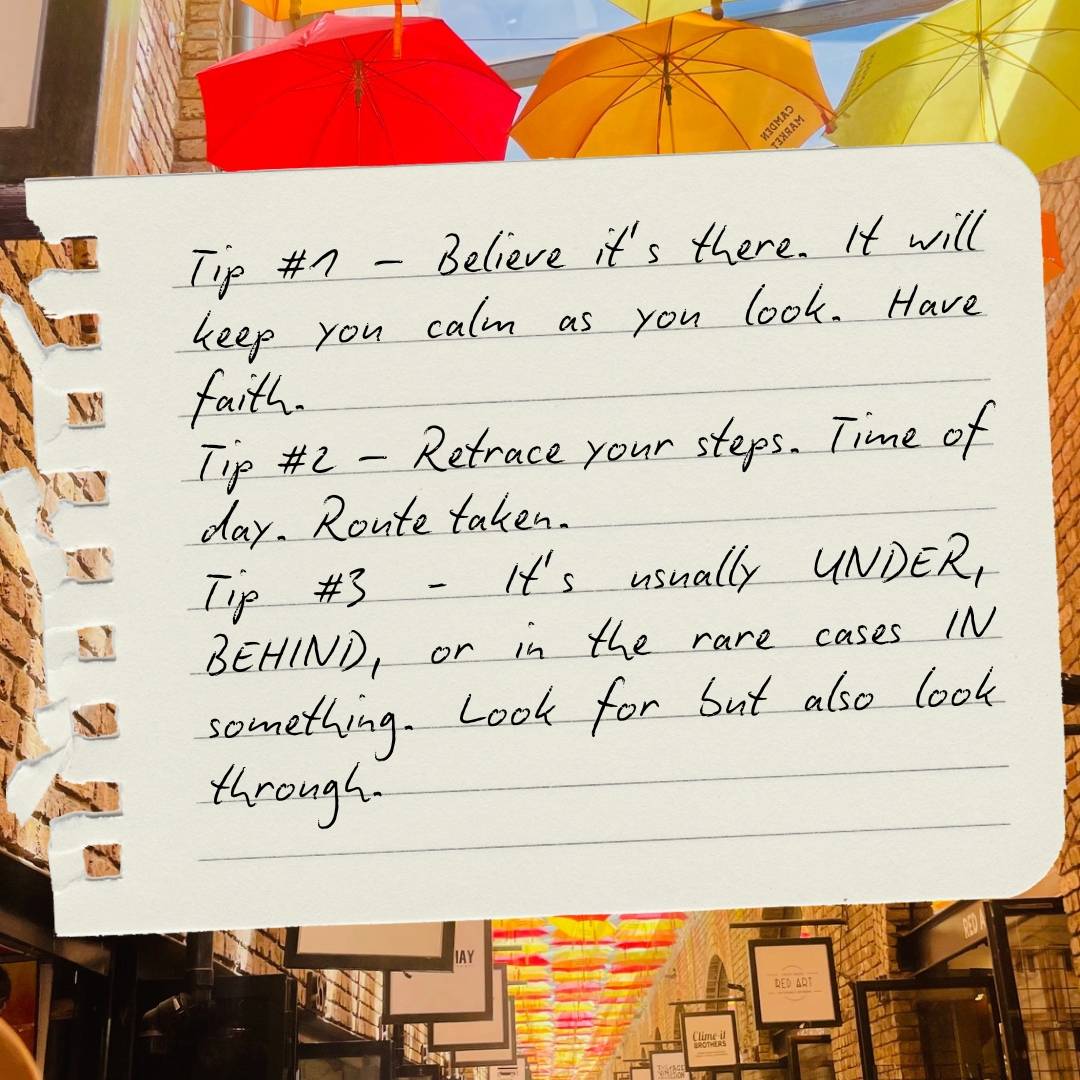 CAMDEN
MARKET
Tip #1 – Believe it's there. It will
keep you calm as you look. Have
faith.
Tip #2 – Retrace your steps. Time of
day. Route taken.
Tip #3 - It's usually UNDER,
BEHIND, or in the rare cases IN
something. Look for but also look
through.
MAY
RED ART
RED A
Clime-it
BROTHERS